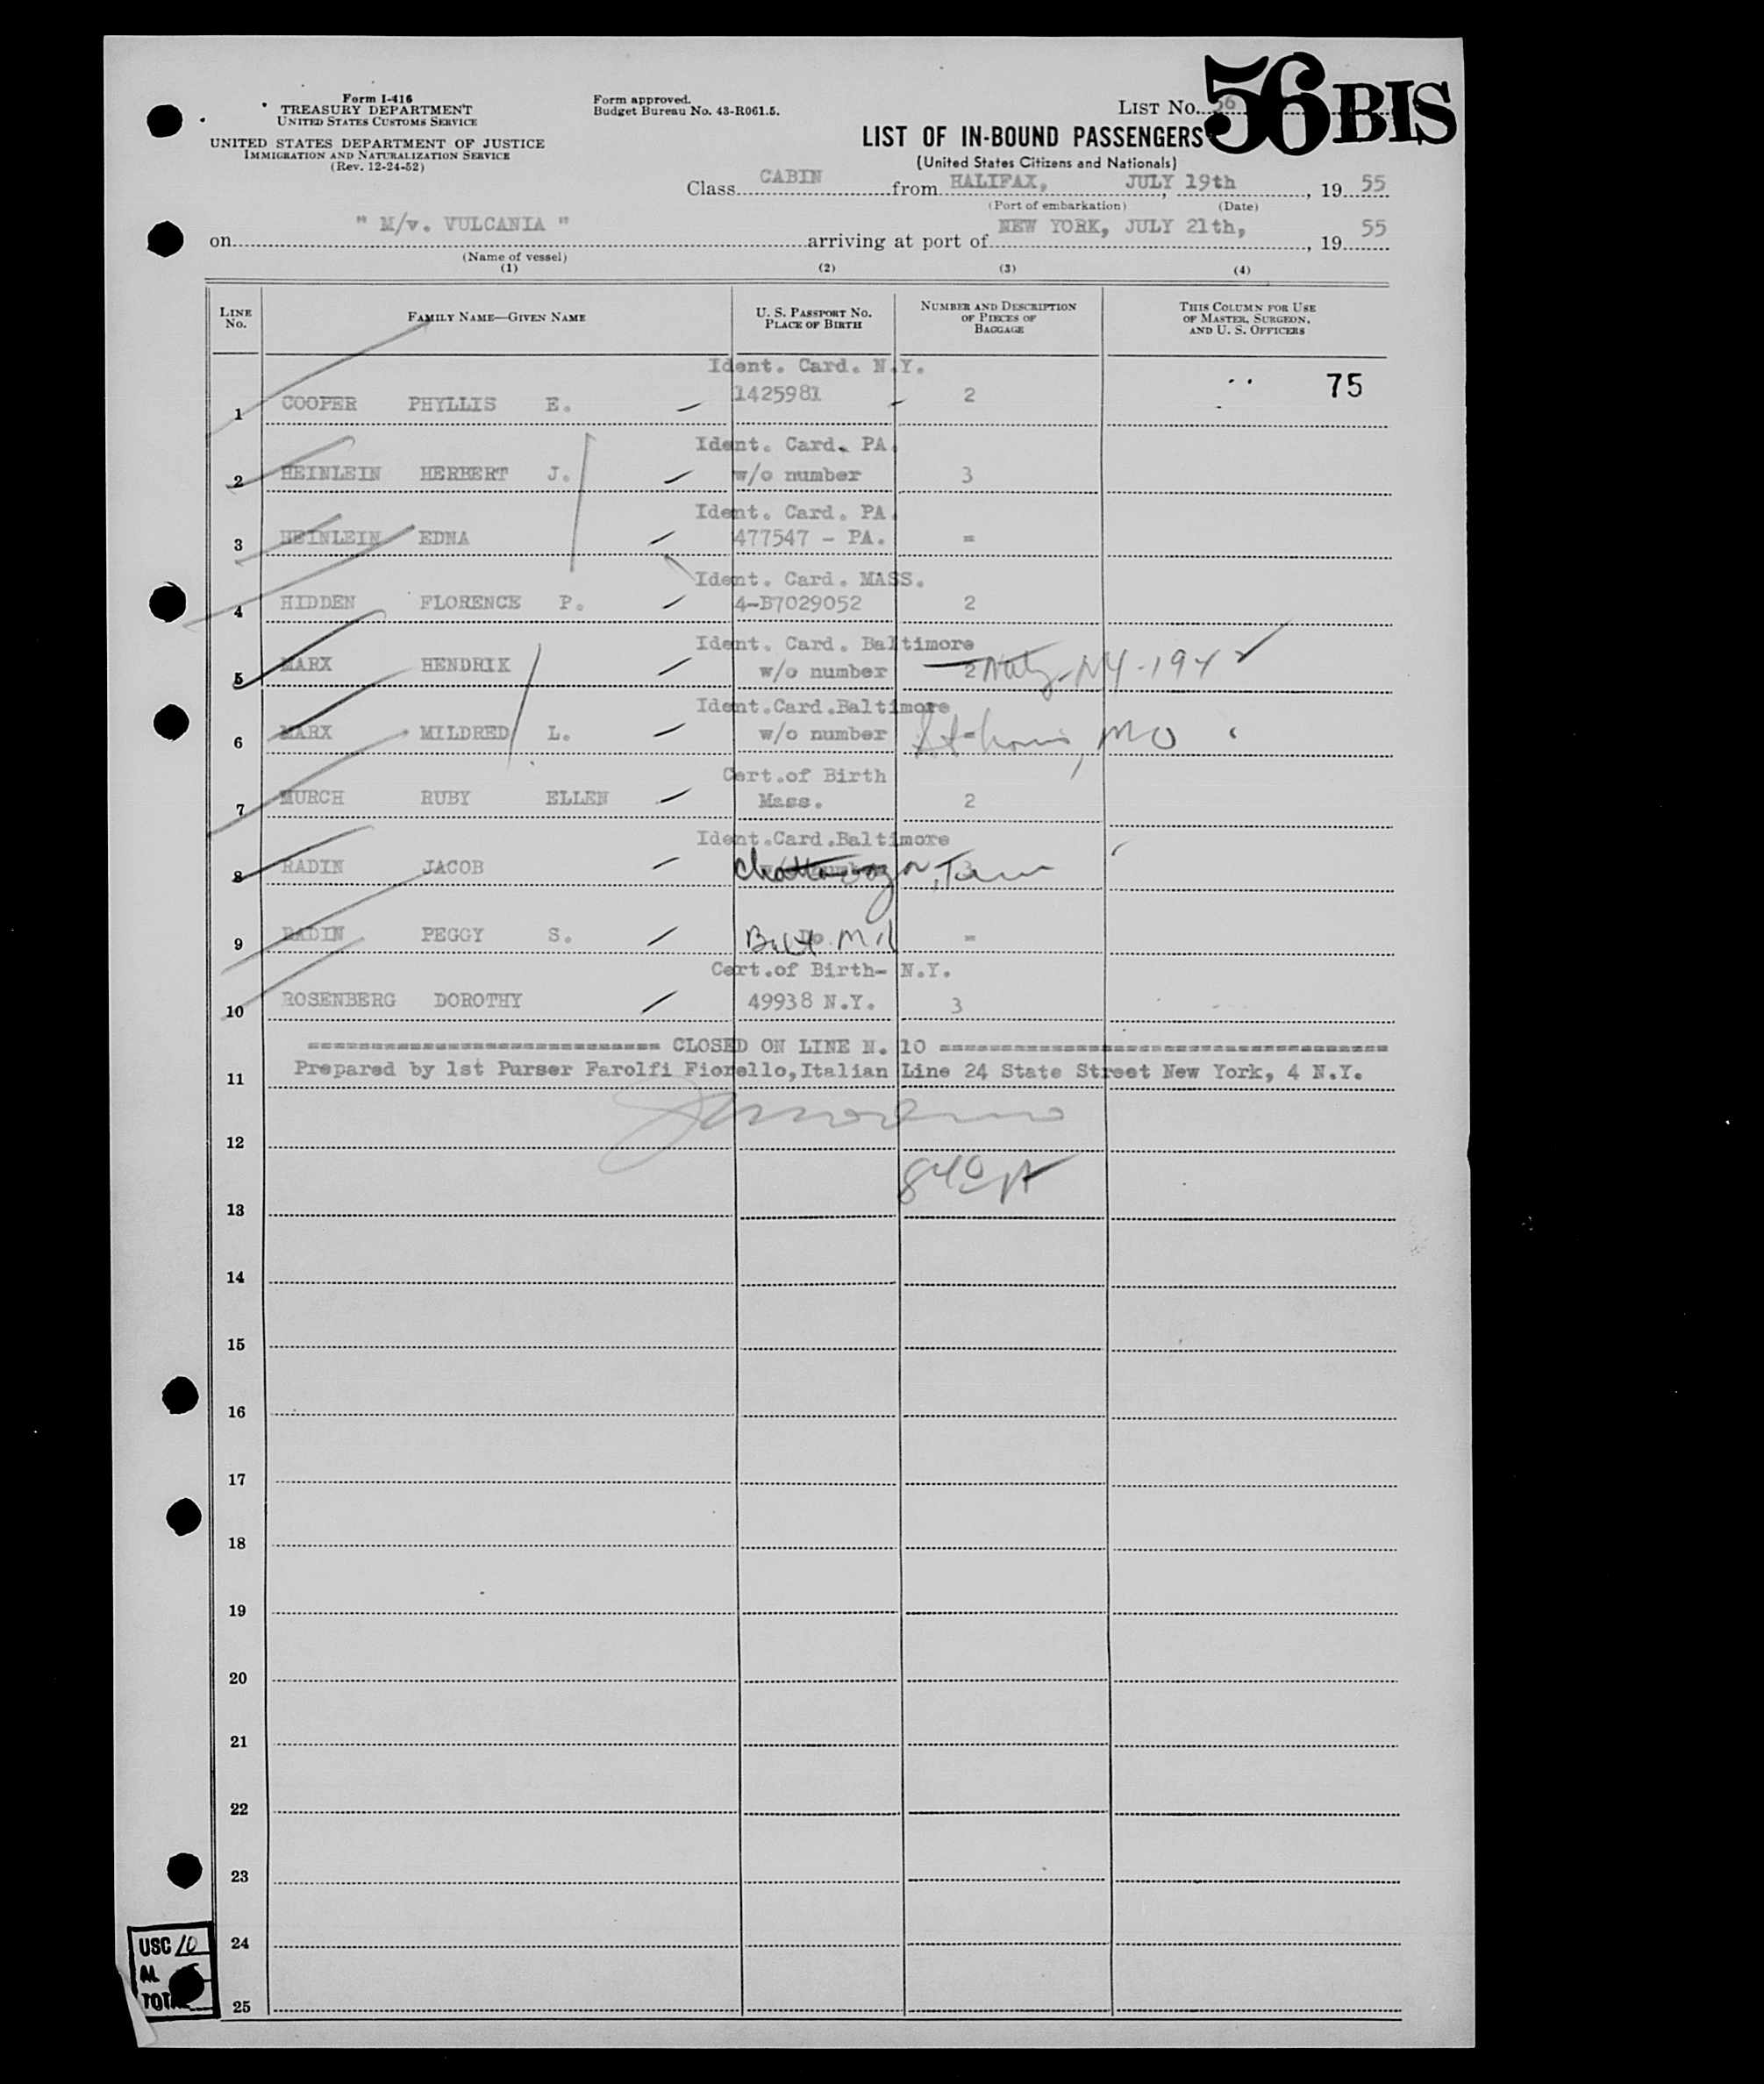 Form I-416
TREASURY DEPARTMENT
UNITED STATES CUSTOMS SERVICE
UNITED STATES DEPARTMENT OF JUSTICE
IMMIGRATION AND NATURALIZATION SERVICE
(Rev. 12-24-52)
Form approved.
Budget Bureau No. 43-R061.5.
LIST No. 56
56 BIS
LIST OF IN-BOUND PASSENGERS
(United States Citizens and Nationals)
Class CABIN from HALIFAX, JULY 19th, 19 55
(Port of embarkation) (Date)
on " M/v. VULCANIA " arriving at port of NEW YORK, JULY 21th, 19 55
(Name of vessel)
(1) (2) (3) (4)
LINE No. FAMILY NAME—GIVEN NAME U. S. PASSPORT No. PLACE OF BIRTH NUMBER AND DESCRIPTION OF PIECES OF BAGGAGE THIS COLUMN FOR USE OF MASTER, SURGEON, AND U. S. OFFICERS
Ident. Card. N.Y.
1 COOPER PHYLLIS E. 1425981 2 75
Ident. Card. PA.
2 HEINLEIN HERBERT J. w/o number 3
Ident. Card. PA.
3 HEINLEIN EDNA 477547 - PA. =
Ident. Card. MASS.
4 HIDDEN FLORENCE P. 4-B7029052 2
Ident. Card. Baltimore
5 MARX HENDRIK w/o number 2 Natz-NY-1942
Ident.Card.Baltimore
6 MARX MILDRED L. w/o number St-Louis, MO
Cert.of Birth
7 MURCH RUBY ELLEN Mass. 2
Ident.Card.Baltimore
8 RADIN JACOB Chattanooga, Tenn
9 RADIN PEGGY S. Balt Md =
Cert.of Birth- N.Y.
10 ROSENBERG DOROTHY 49938 N.Y. 3
============================ CLOSED ON LINE N. 10 ====================================
11 Prepared by 1st Purser Farolfi Fiorello,Italian Line 24 State Street New York, 4 N.Y.
12
13
14
15
16
17
18
19
20
21
22
23
24
25
USC 10
AL
TOTAL